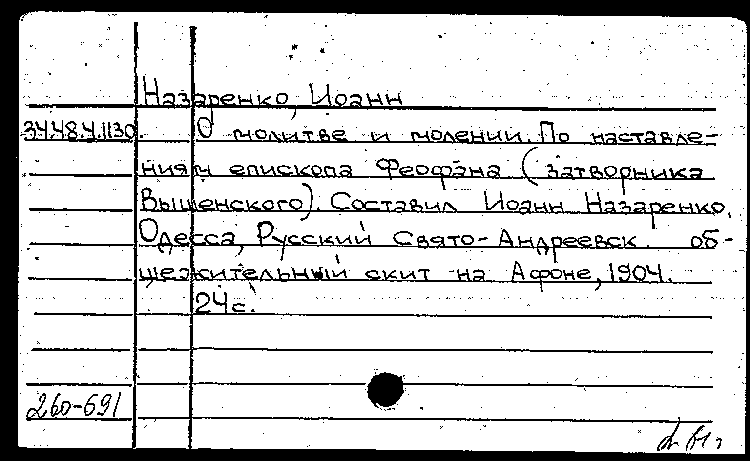 Назаренко, Иоанн
34.48.4.1130. О молитве и молении. По наставле-
ниям епископа Феофана (затворника
Вышенского). Составил Иоанн Назаренко.
Одесса, Русский Свято-Андреевск. об-
щежительный скит на Афоне, 1904.
24с.
260-691